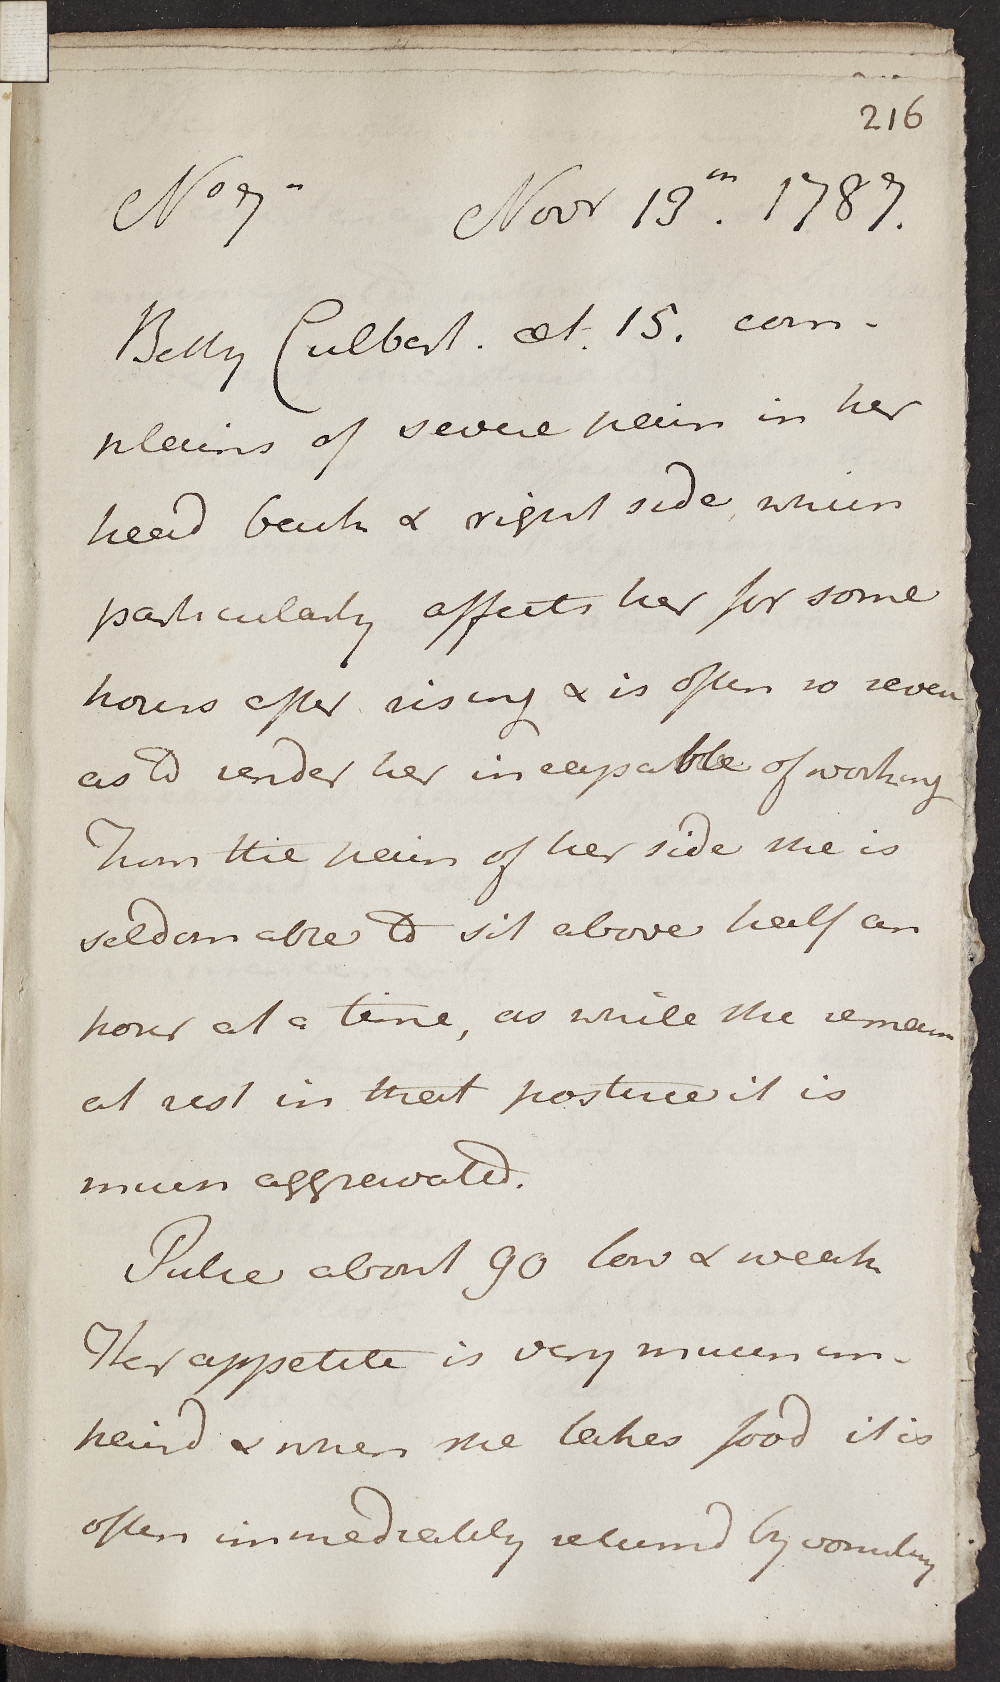 216
No 7 Novr 13th. 1787.
Betty Culbert. æt. 15. com-
plains of severe pain in her
head back & right side, which
particularly affects her for some
hours after rising & is often so severe
as to render her incapable of working
From the pain of her side she is
seldom able to sit above half an
hour at a time, as while she remains
at rest in that posture it is
much aggrevated.
Pulse about 90 low & weak
Her appetite is very much im-
paird & when she takes food it is
often immediately returnd by vomiting